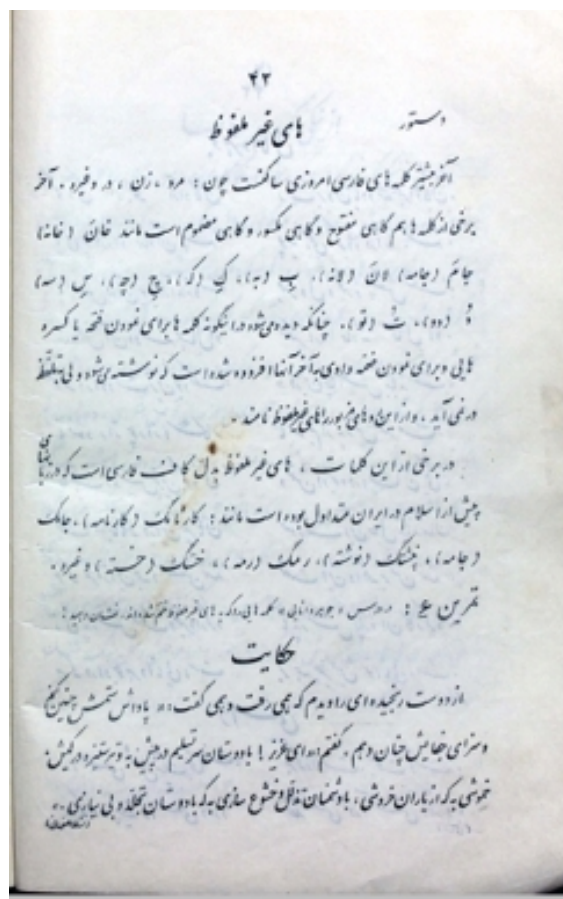 ۴۲
دستور
های غیر ملفوظ
آخر بیشتر کلمه های فارسی امروزی ساکنست چون : مرد ، زن ، در و غیره . آخر
برخی از کلمه ها هم گاهی مفتوح و گاهی مکسور و گاهی مضموم است مانند خانَ (خانه)
جامَ (جامه) لانَ (لانه) ، بِ (به) ، کِ (که) ، چِ (چه) ، سِ (سه)
دُ (دو) ، تُ (تو) ، چنانکه دیده می شود در اینگونه کلمه ها برای نمودن فتحه یا کسره
هایی و برای نمودن ضمه واوی به آخر آنها افزوده شده است که نوشته می شود ولی بتلفظ
در نمی آید ، و از این رو های مزبور را های غیر ملفوظ نامند .
در برخی از این کلمات ، های غیر ملفوظ بدل کاف فارسی است که در زبانهای
پیش از اسلام در ایران متداول بوده است مانند : کارنامک (کارنامه) ، جامک
(جامه) ، نپشتک (نوشته) ، رمک (رمه) ، خستک (خسته) و غیره .
تمرین ع : در درس « جوهر دانایی » کلمه هایی را که به های غیر ملفوظ ختم شده اند نشان دهید :
حکایت
از دوست رنجیده ای را دیدم که همی رفت و همی گفت : « پاداش ستمش چنین کنم
و سزای جفایش چنان دهم . گفتم « ای عزیز ! با دوستان سر تسلیم در پیش به و تیر ستیزه در کیش .
خموشی به که از یاران خروشی ، با دشمنان تذلل و خشوع سازی به که با دوستان تجلد و بی نیازی . »